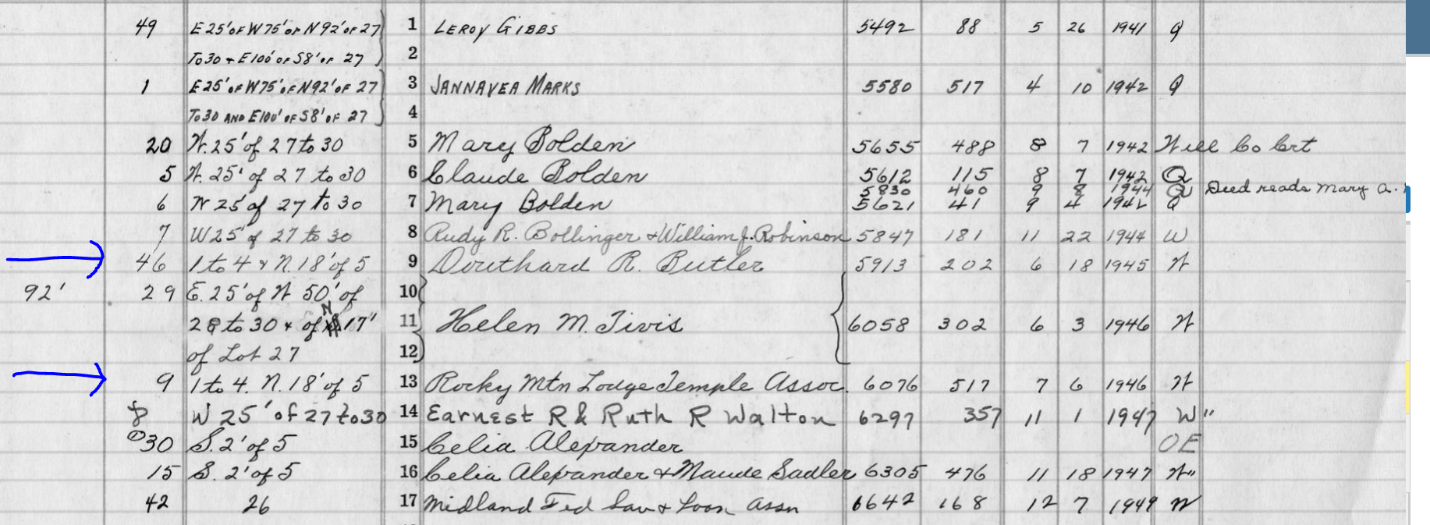 49 E 25' OF W 75' OF N 92' OF 27 1 LEROY GIBBS 5492 88 5 26 1941 Q
TO 30 + E 100' OF S 8' OF 27 2
1 E 25' OF W 75' OF N 92' OF 27 3 JANNAVEA MARKS 5580 517 4 10 1942 Q
TO 30 AND E 100' OF S 8' OF 27 4
20 W. 25' of 27 to 30 5 Mary Bolden 5655 488 8 7 1942 Will Co Crt
5 W. 25' of 27 to 30 6 Claude Bolden 5612 115 8 7 1942 Q
5830 460 9 8 1944 Q Deed reads Mary A.
6 W 25' of 27 to 30 7 Mary Bolden 5621 41 9 4 1942 Q
7 W 25' of 27 to 30 8 Rudy R. Bollinger + William J. Robinson 5847 181 11 22 1944 W
46 1 to 4 + N. 18' of 5 9 Douthard R. Butler 5913 202 6 18 1945 W
92' 29 E. 25' of W 50' of 10
28 to 30 + of N 17' 11 Helen M. Tivis 6058 302 6 3 1946 W
of Lot 27 12
9 1 to 4. N. 18' of 5 13 Rocky Mtn Lodge Temple Assoc. 6076 517 7 6 1946 W
8 W 25' of 27 to 30 14 Earnest R & Ruth R Walton 6297 357 11 1 1947 W"
30 S. 2' of 5 15 Celia Alexander OE
15 S. 2' of 5 16 Celia Alexander + Maude Sadler 6305 476 11 18 1947 W"
42 26 17 Midland Fed Sav + Loan Assn 6642 168 12 7 1949 W